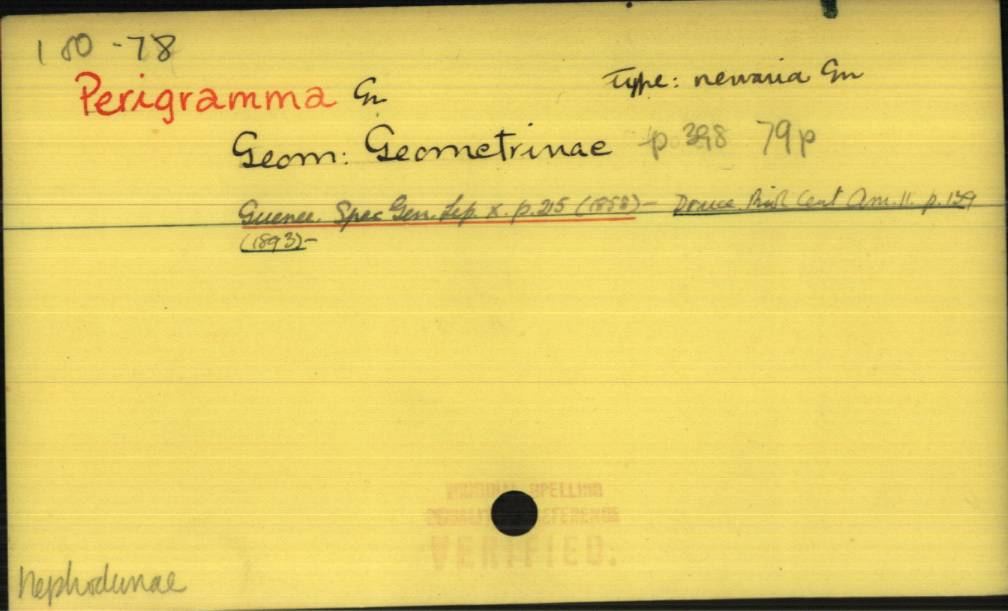 180-78
Perigramma Gn Type: nervaria Gn
Geom: Geometrinae p 398 79p
Guenee. Spec Gen. Lep. X. p. 215 (1858)- Druce. Biol Cent Am. 11. p. 129
(1893)-
ORIGINAL SPELLING
REFERENCE
VERIFIED.
Nephodiinae